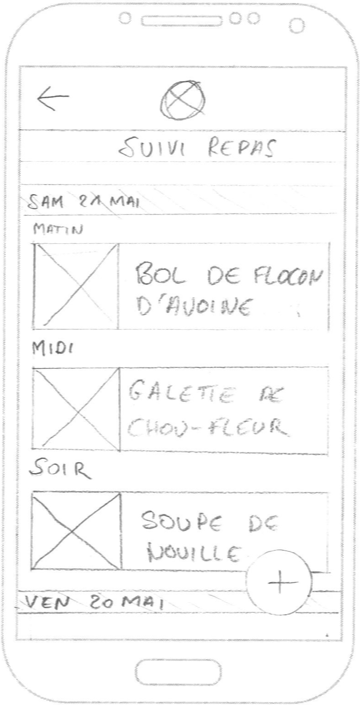 SUIVI REPAS
SAM 21 MAI
MATIN
BOL DE FLOCON
D'AVOINE
MIDI
GALETTE DE
CHOU-FLEUR
SOIR
SOUPE DE
NOUILLE
+
VEN 20 MAI